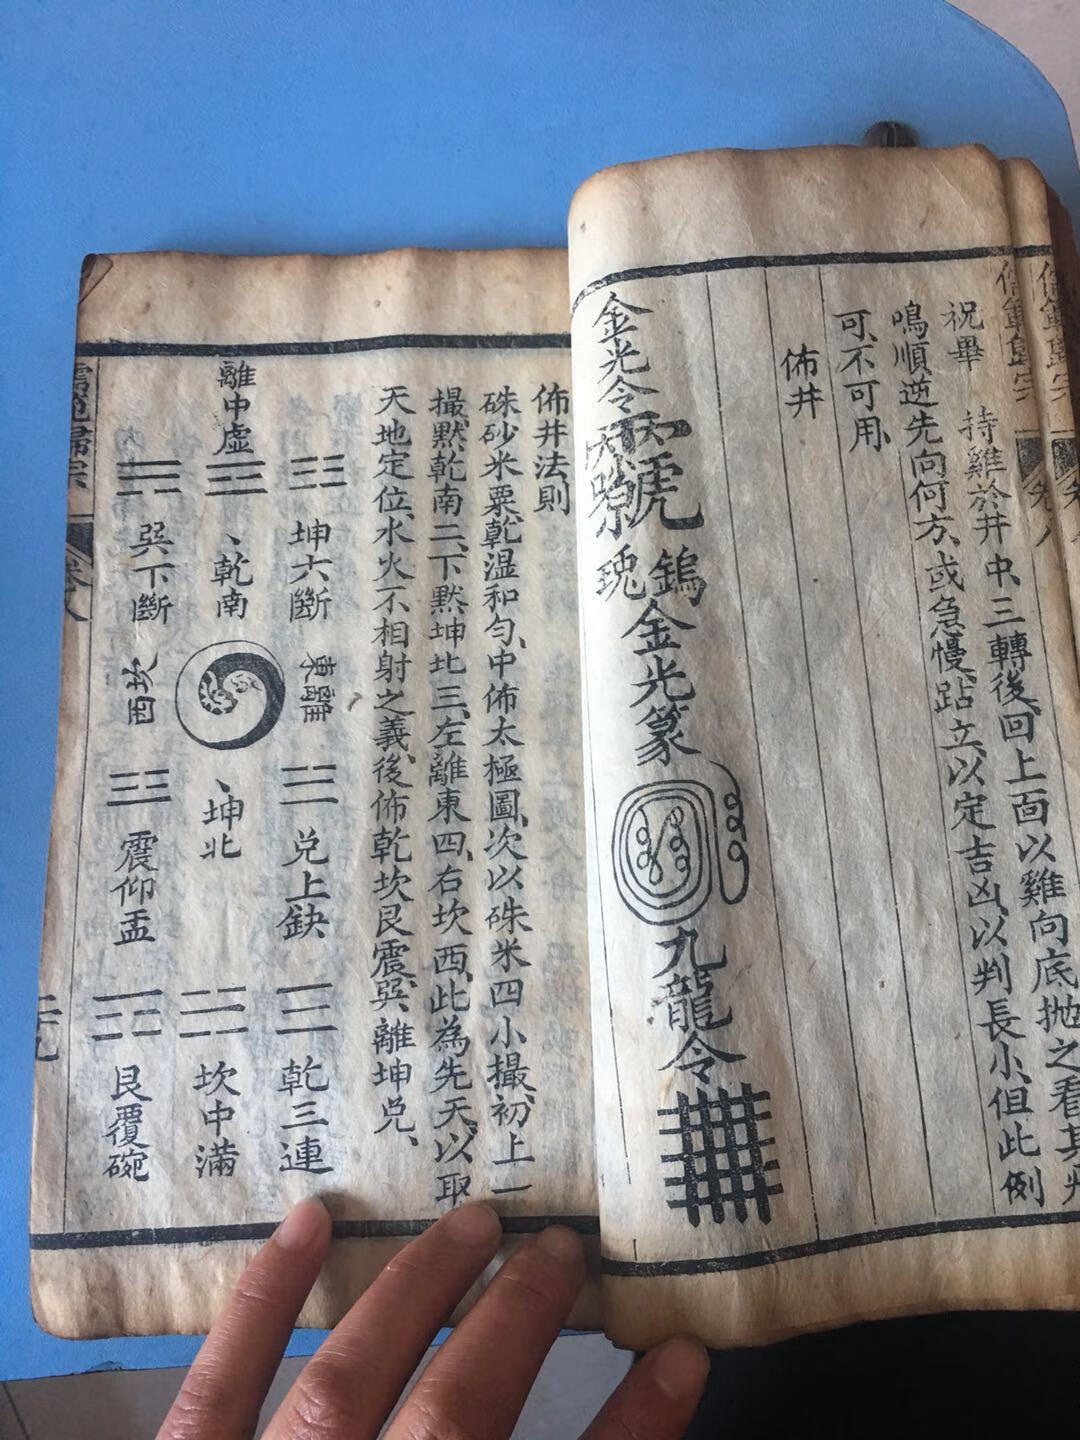 祝畢 持雞於井中、三轉後、回上面以雞向底拋之看其
鳴順逆先向何方、或急慢、跕立、以定吉凶、以判長小、但此例
可、不可用、
佈井
金光令
鎢
瑰
金光篆
九龍令
佈井法則
硃砂米粟乾湿和勻、中佈太極圖、次以硃米四小撮、初上一
撮、黙乾南二、下黙坤北三、左離東四、右坎西、此為先天、以取
天地定位、水火不相射之義、後佈乾坎艮震巽、離坤兌、
坤六斷
東離
兌上缺
乾三連
離中虛
乾南
坤北
坎中滿
巽下斷
西坎
震仰盂
艮覆碗
儒範歸宗
卷八